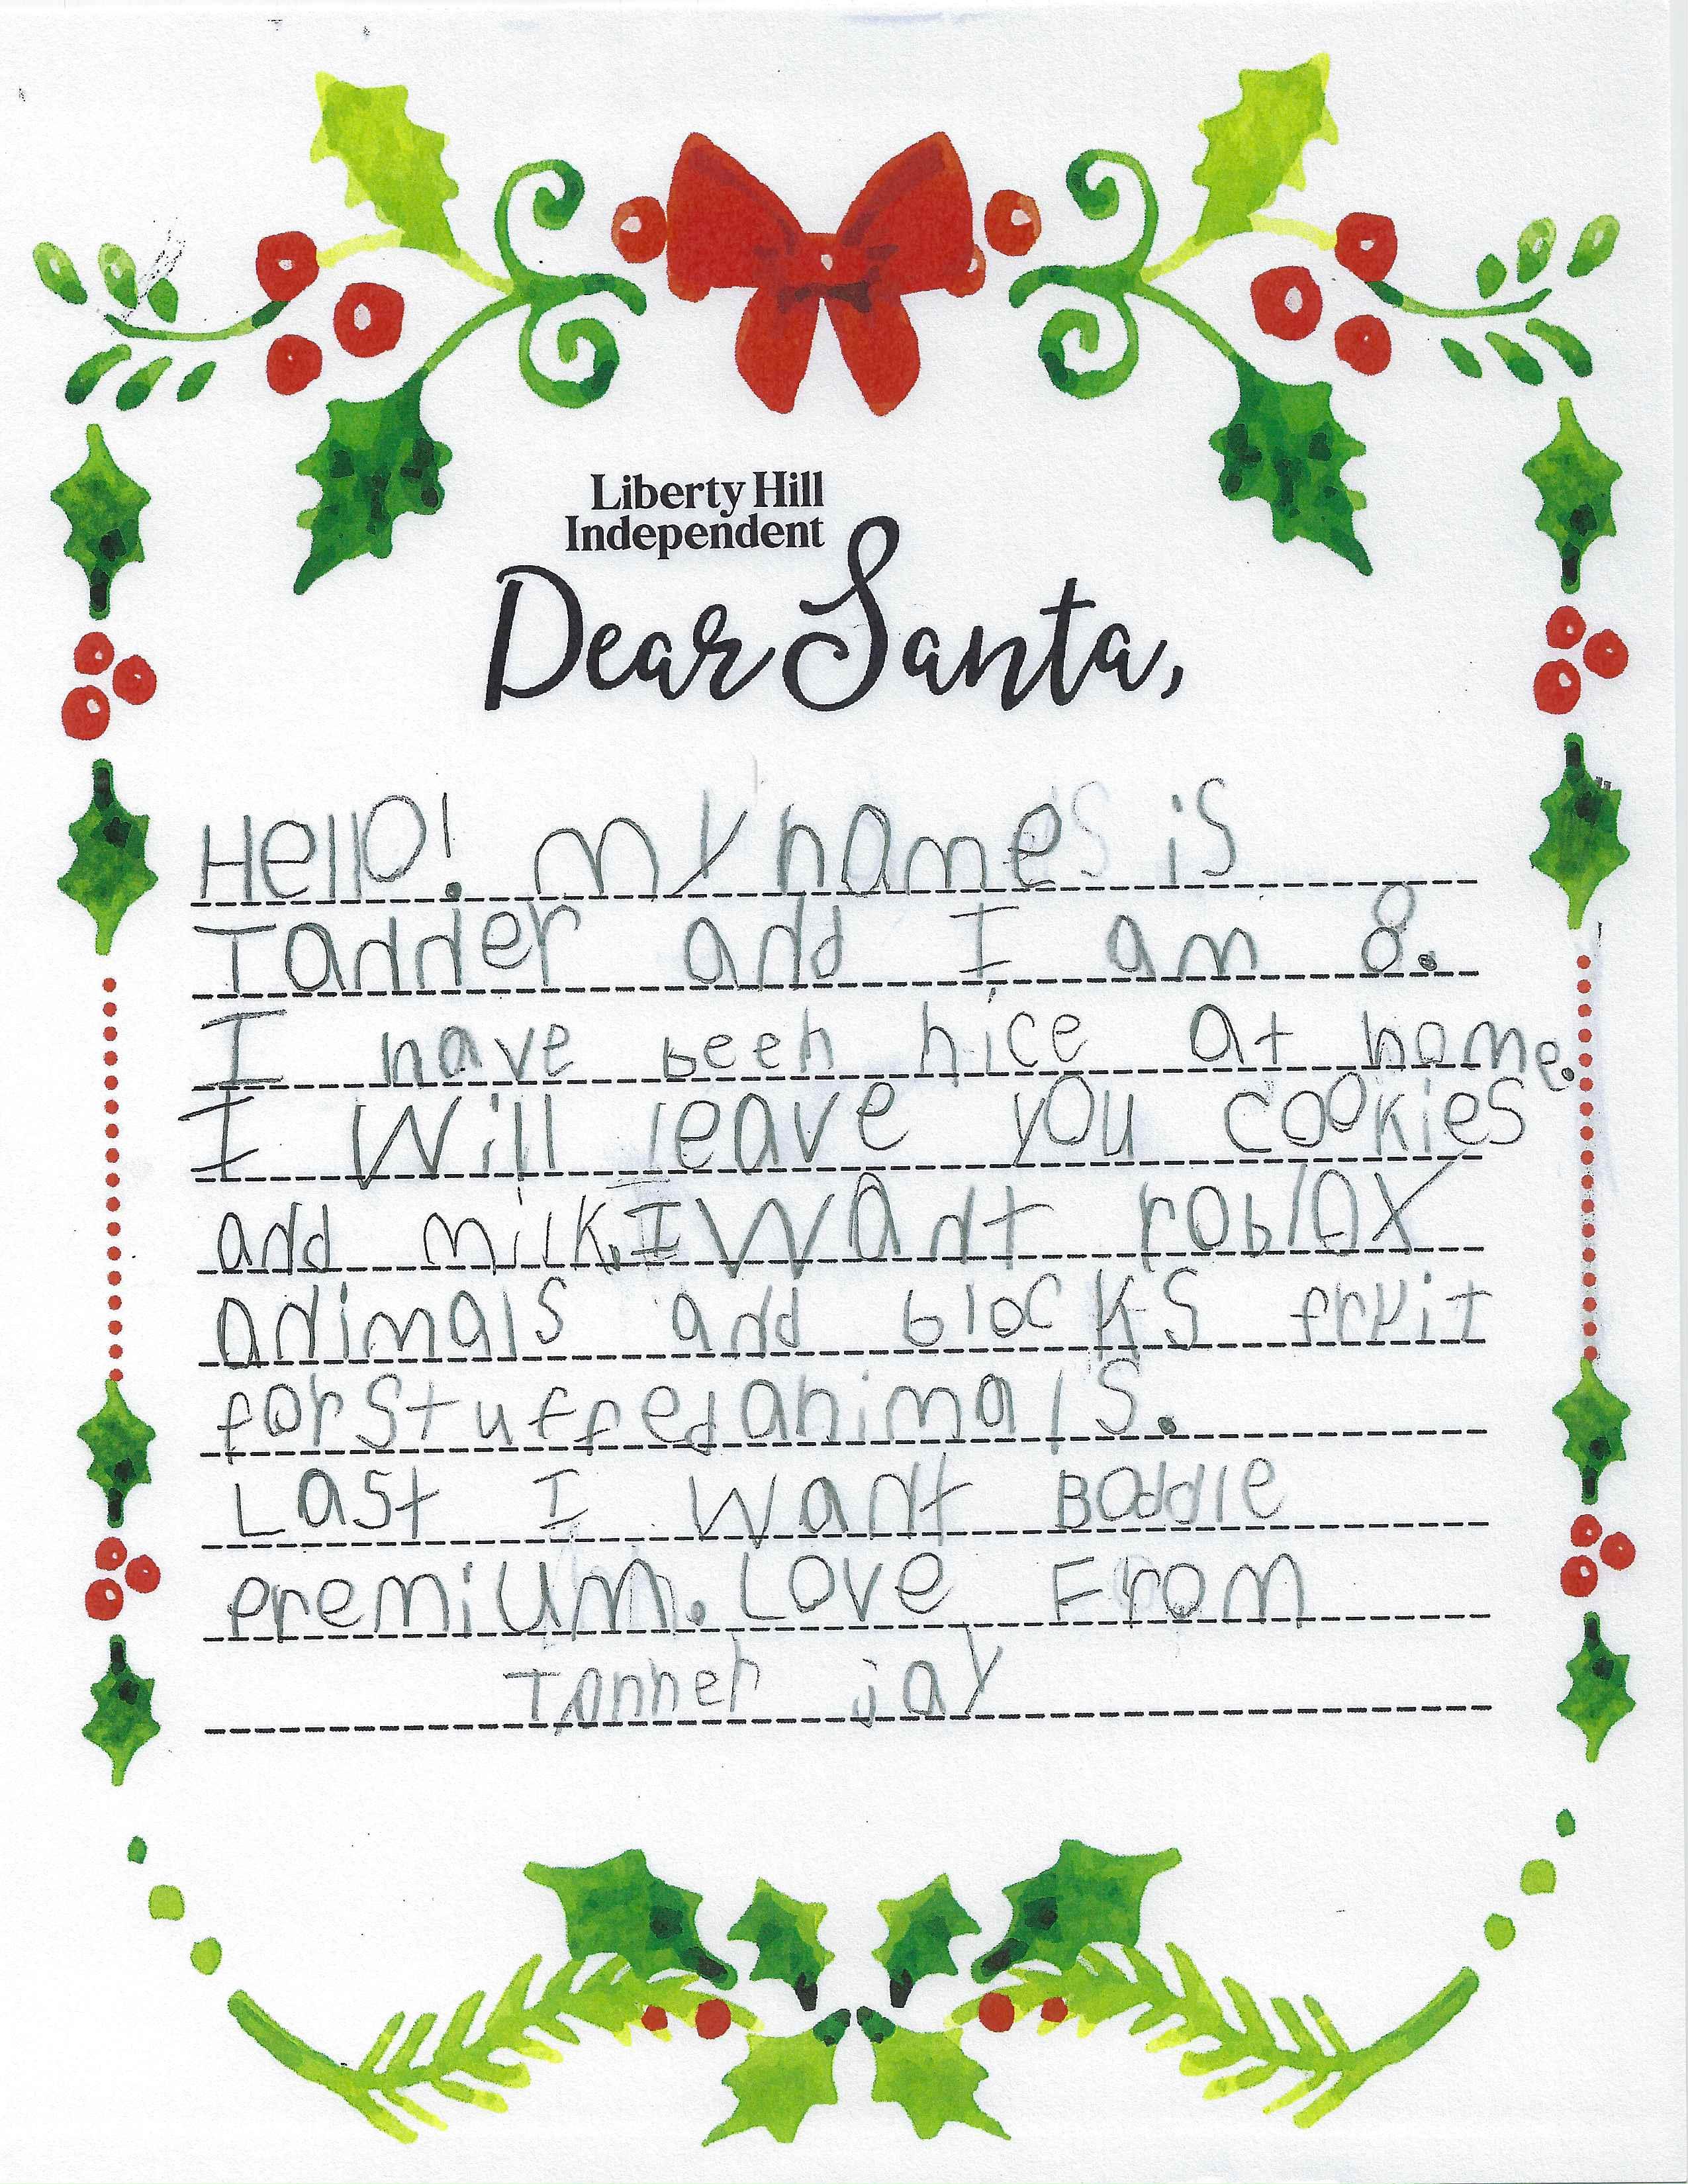 Liberty Hill
Independent
Dear Santa,
Hello! my names is
Tanner and I am 8.
I have been nice at home.
I Will leave you cookies
and milk. I Want roblox
animals and blocks fruit
for stuffed animals.
Last I want Boddle
premium. Love From
Tanner jay